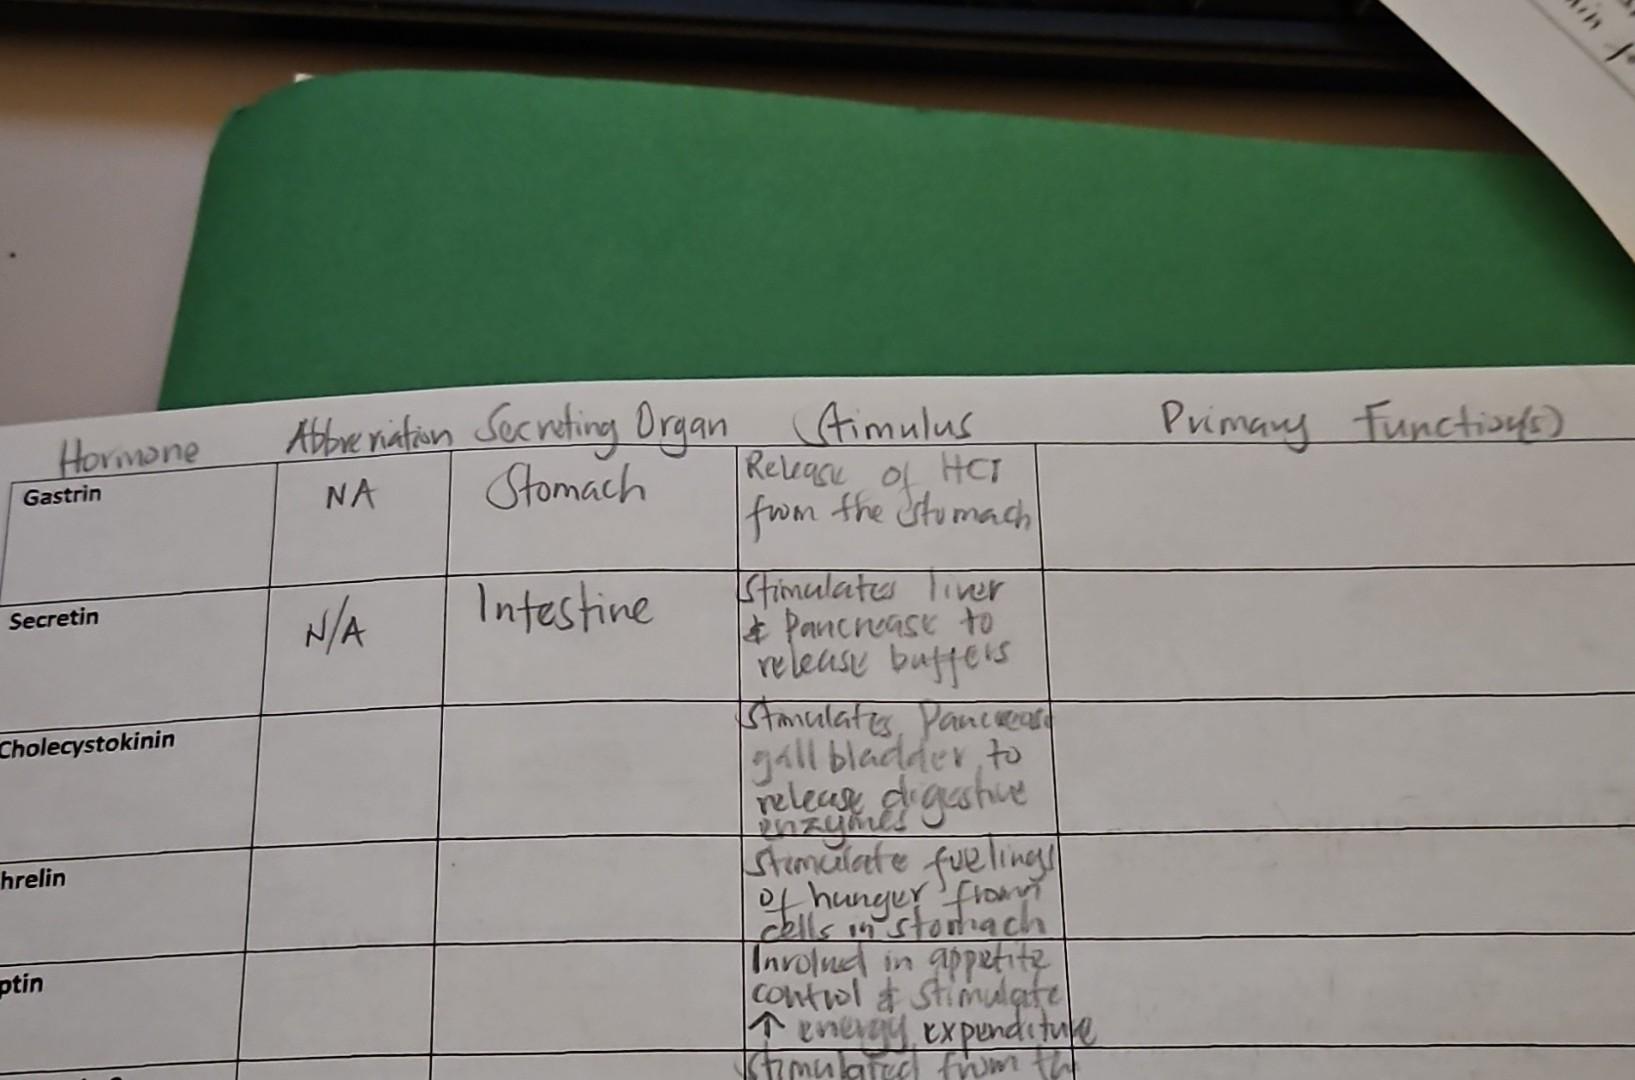 Hormone Abbreviation Secreting Organ Stimulus Primary Function(s)
Gastrin NA Stomach Release of HCl
from the stomach
Secretin N/A Intestine Stimulates liver
& Pancrease to
release buffers
Cholecystokinin Stimulates Pancrease
gallbladder to
release digestive
enzymes
hrelin Stimulate feelings
of hunger from
cells in stomach
ptin Involved in appetite
control & stimulate
↑ energy expenditure
Stimulated from th